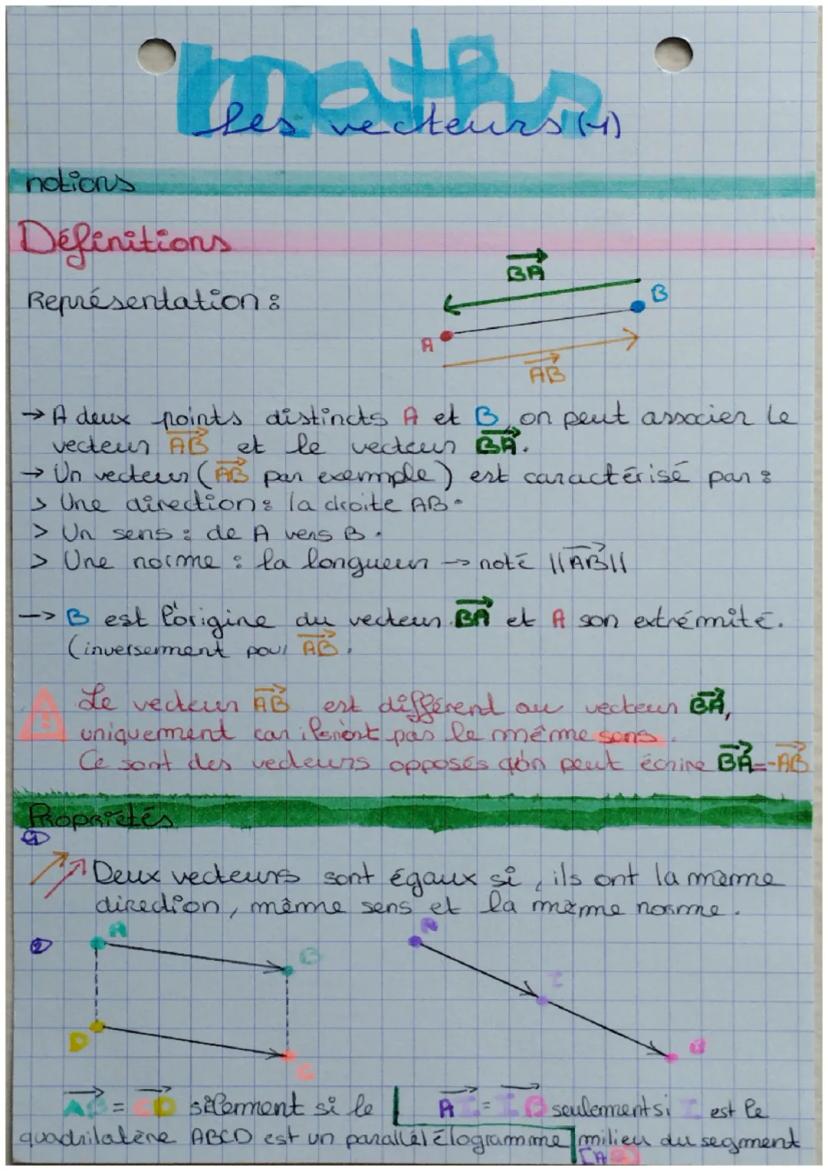 maths
Les vecteurs (1)
notions
Définitions
BA
Représentation :
B
A
AB
→ A deux points distincts A et B, on peut associer le
vecteur AB et le vecteur BA.
→ Un vecteur (AB par exemple) est caractérisé par :
> Une direction : la droite AB.
> Un sens : de A vers B.
> Une norme : la longueur → noté ||AB||
→ B est l'origine du vecteur BA et A son extrémité.
(inversement pour AB.
Le vecteur AB est différent au vecteur BA,
uniquement car ils n'ont pas le même sens.
Ce sont des vecteurs opposés qu'on peut écrire BA=-AB
Propriétés
1
Deux vecteurs sont égaux si, ils ont la même
direction, même sens et la même norme.
2
A
B
A
I
B
D
C
AB = CD si le
quadrilatère ABCD est un parallélélogramme
AI = IB seulement si I est le
milieu du segment
[AB]